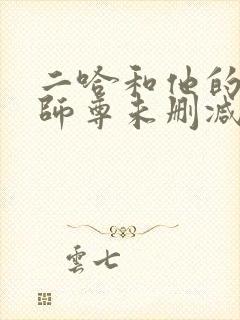 二哈和他的
師尊未删减
雲七